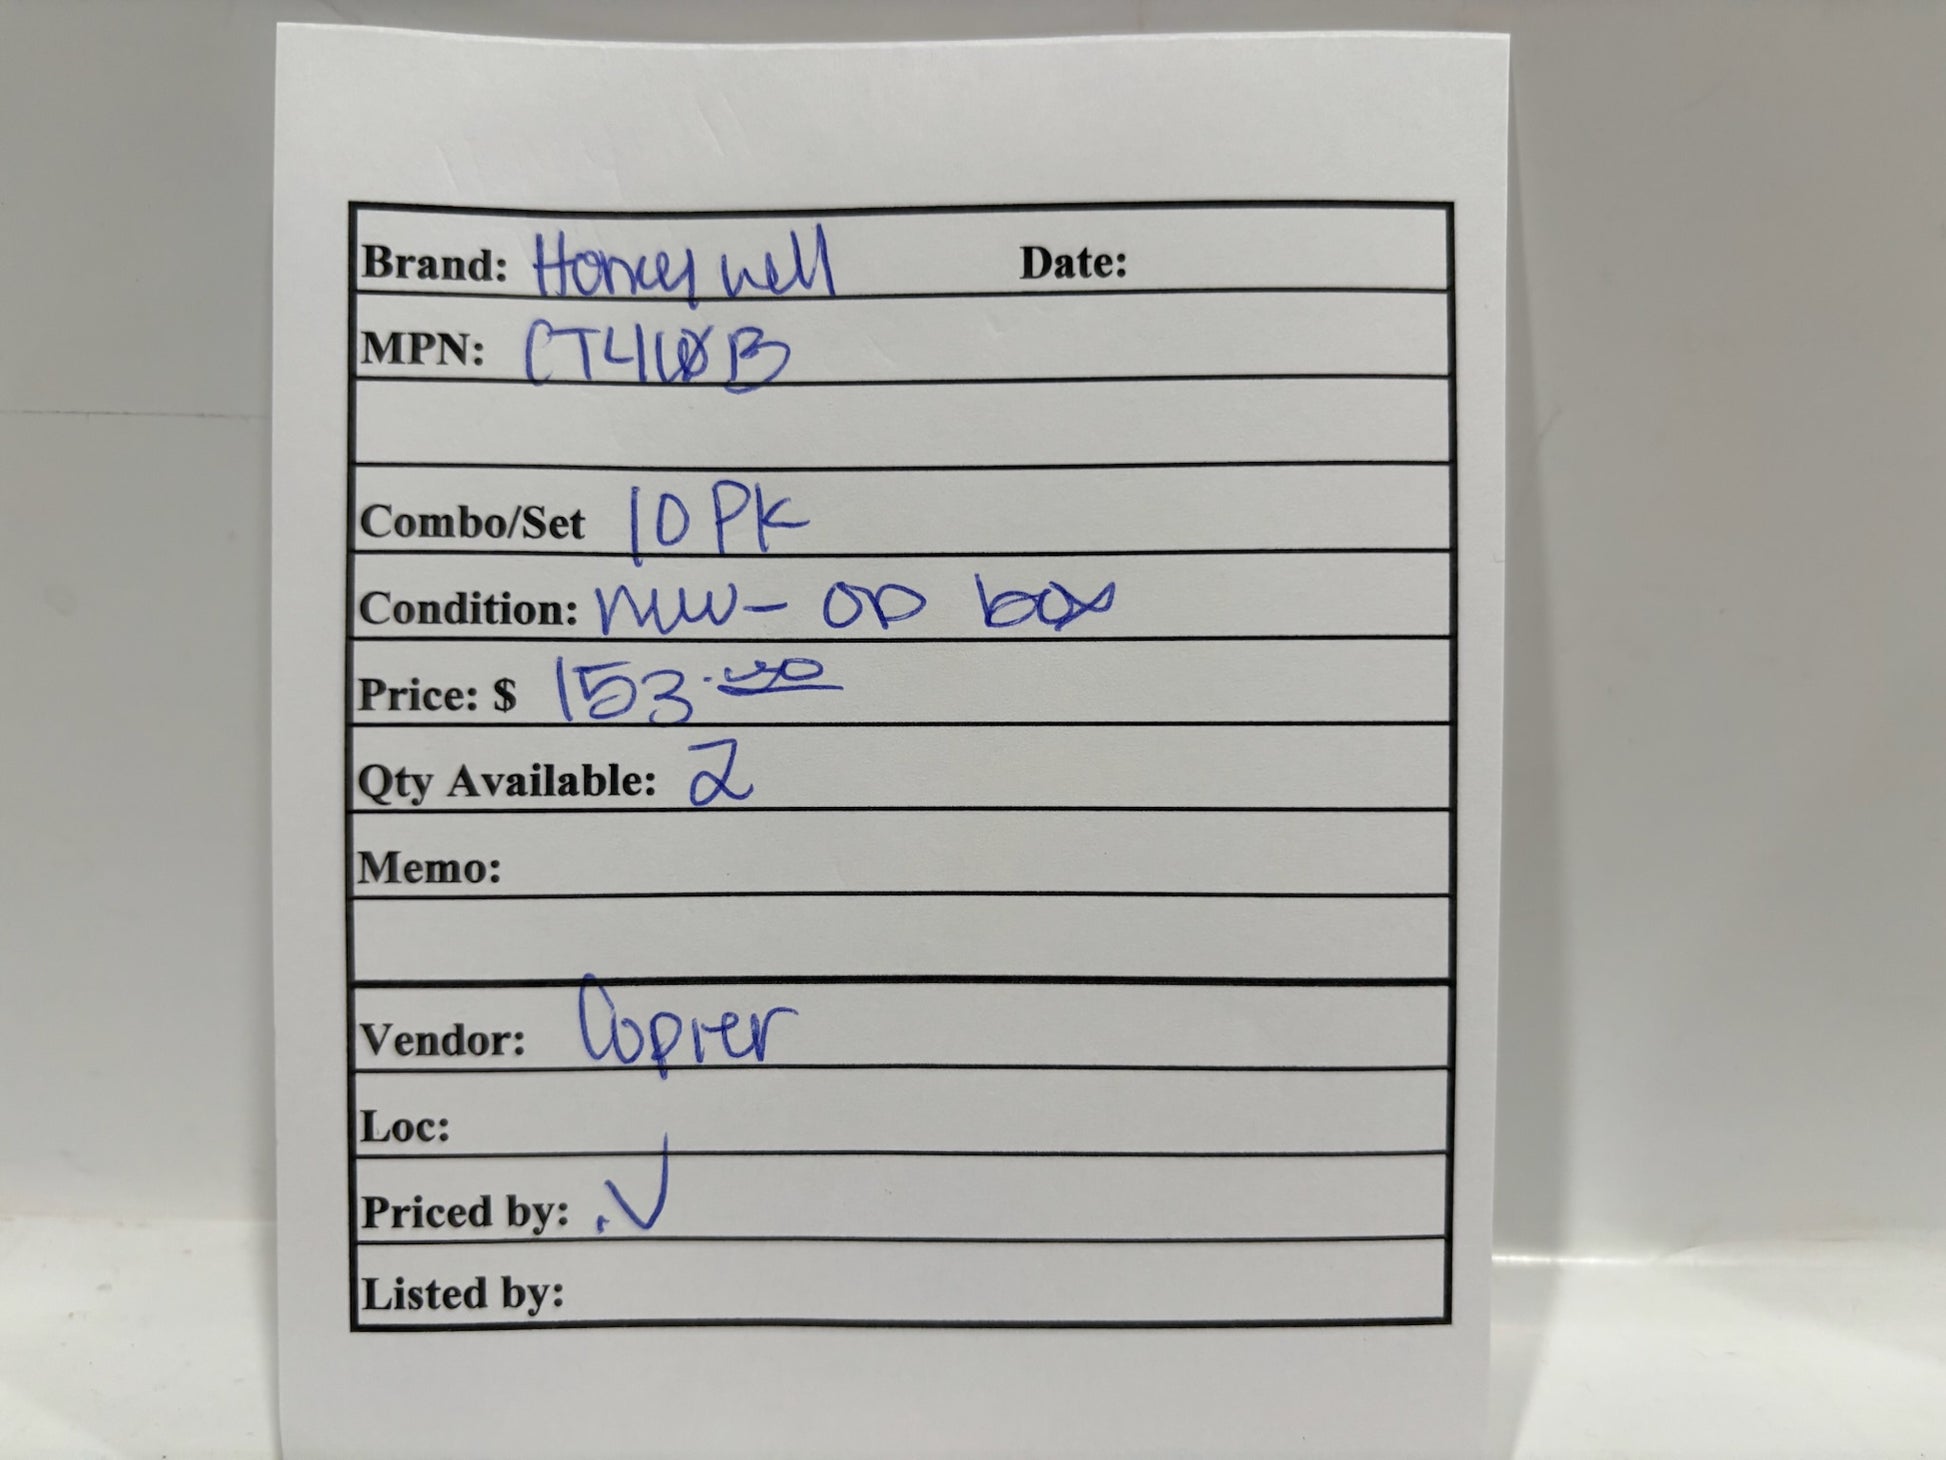 Brand: Honeywell Date:
MPN: CT410B
Combo/Set 10 PK
Condition: new - OP box
Price: $ 153.00
Qty Available: 2
Memo:
Vendor: Copier
Loc:
Priced by: .V
Listed by: